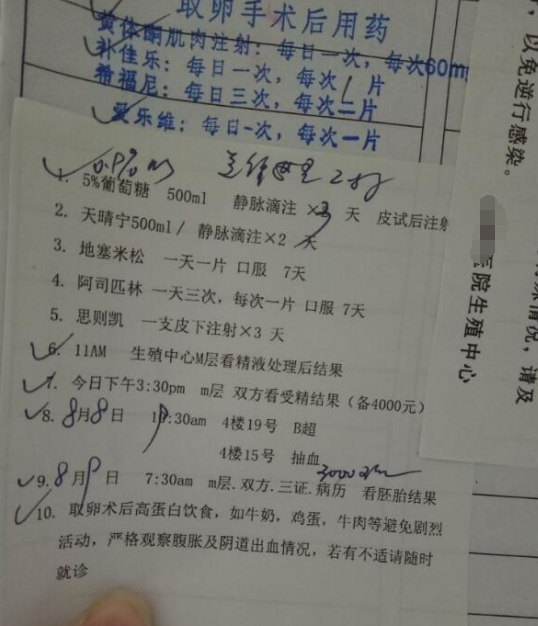 取卵手术后用药
黄体酮肌肉注射：每日一次，每次60m
补佳乐：每日一次，每次1片
希福尼：每日三次，每次二片
爱乐维：每日一次，每次一片
，以免逆行感染。
医院生殖中心
情况，请及
0.9% NS
1. 5%葡萄糖 500ml 静脉滴注 ×3 天 皮试后注射
2. 天晴宁500ml / 静脉滴注×2 天
3. 地塞米松 一天一片 口服 7天
4. 阿司匹林 一天三次，每次一片 口服 7天
5. 思则凯 一支皮下注射×3 天
6. 11AM 生殖中心M层看精液处理后结果
7. 今日下午3:30pm m层 双方看受精结果（备4000元）
8. 8月8日 :30am 4楼19号 B超
4楼15号 抽血
9. 8月9日 7:30am m层.双方.三证.病历 看胚胎结果
10. 取卵术后高蛋白饮食，如牛奶，鸡蛋，牛肉等避免剧烈
活动，严格观察腹胀及阴道出血情况，若有不适请随时
就诊